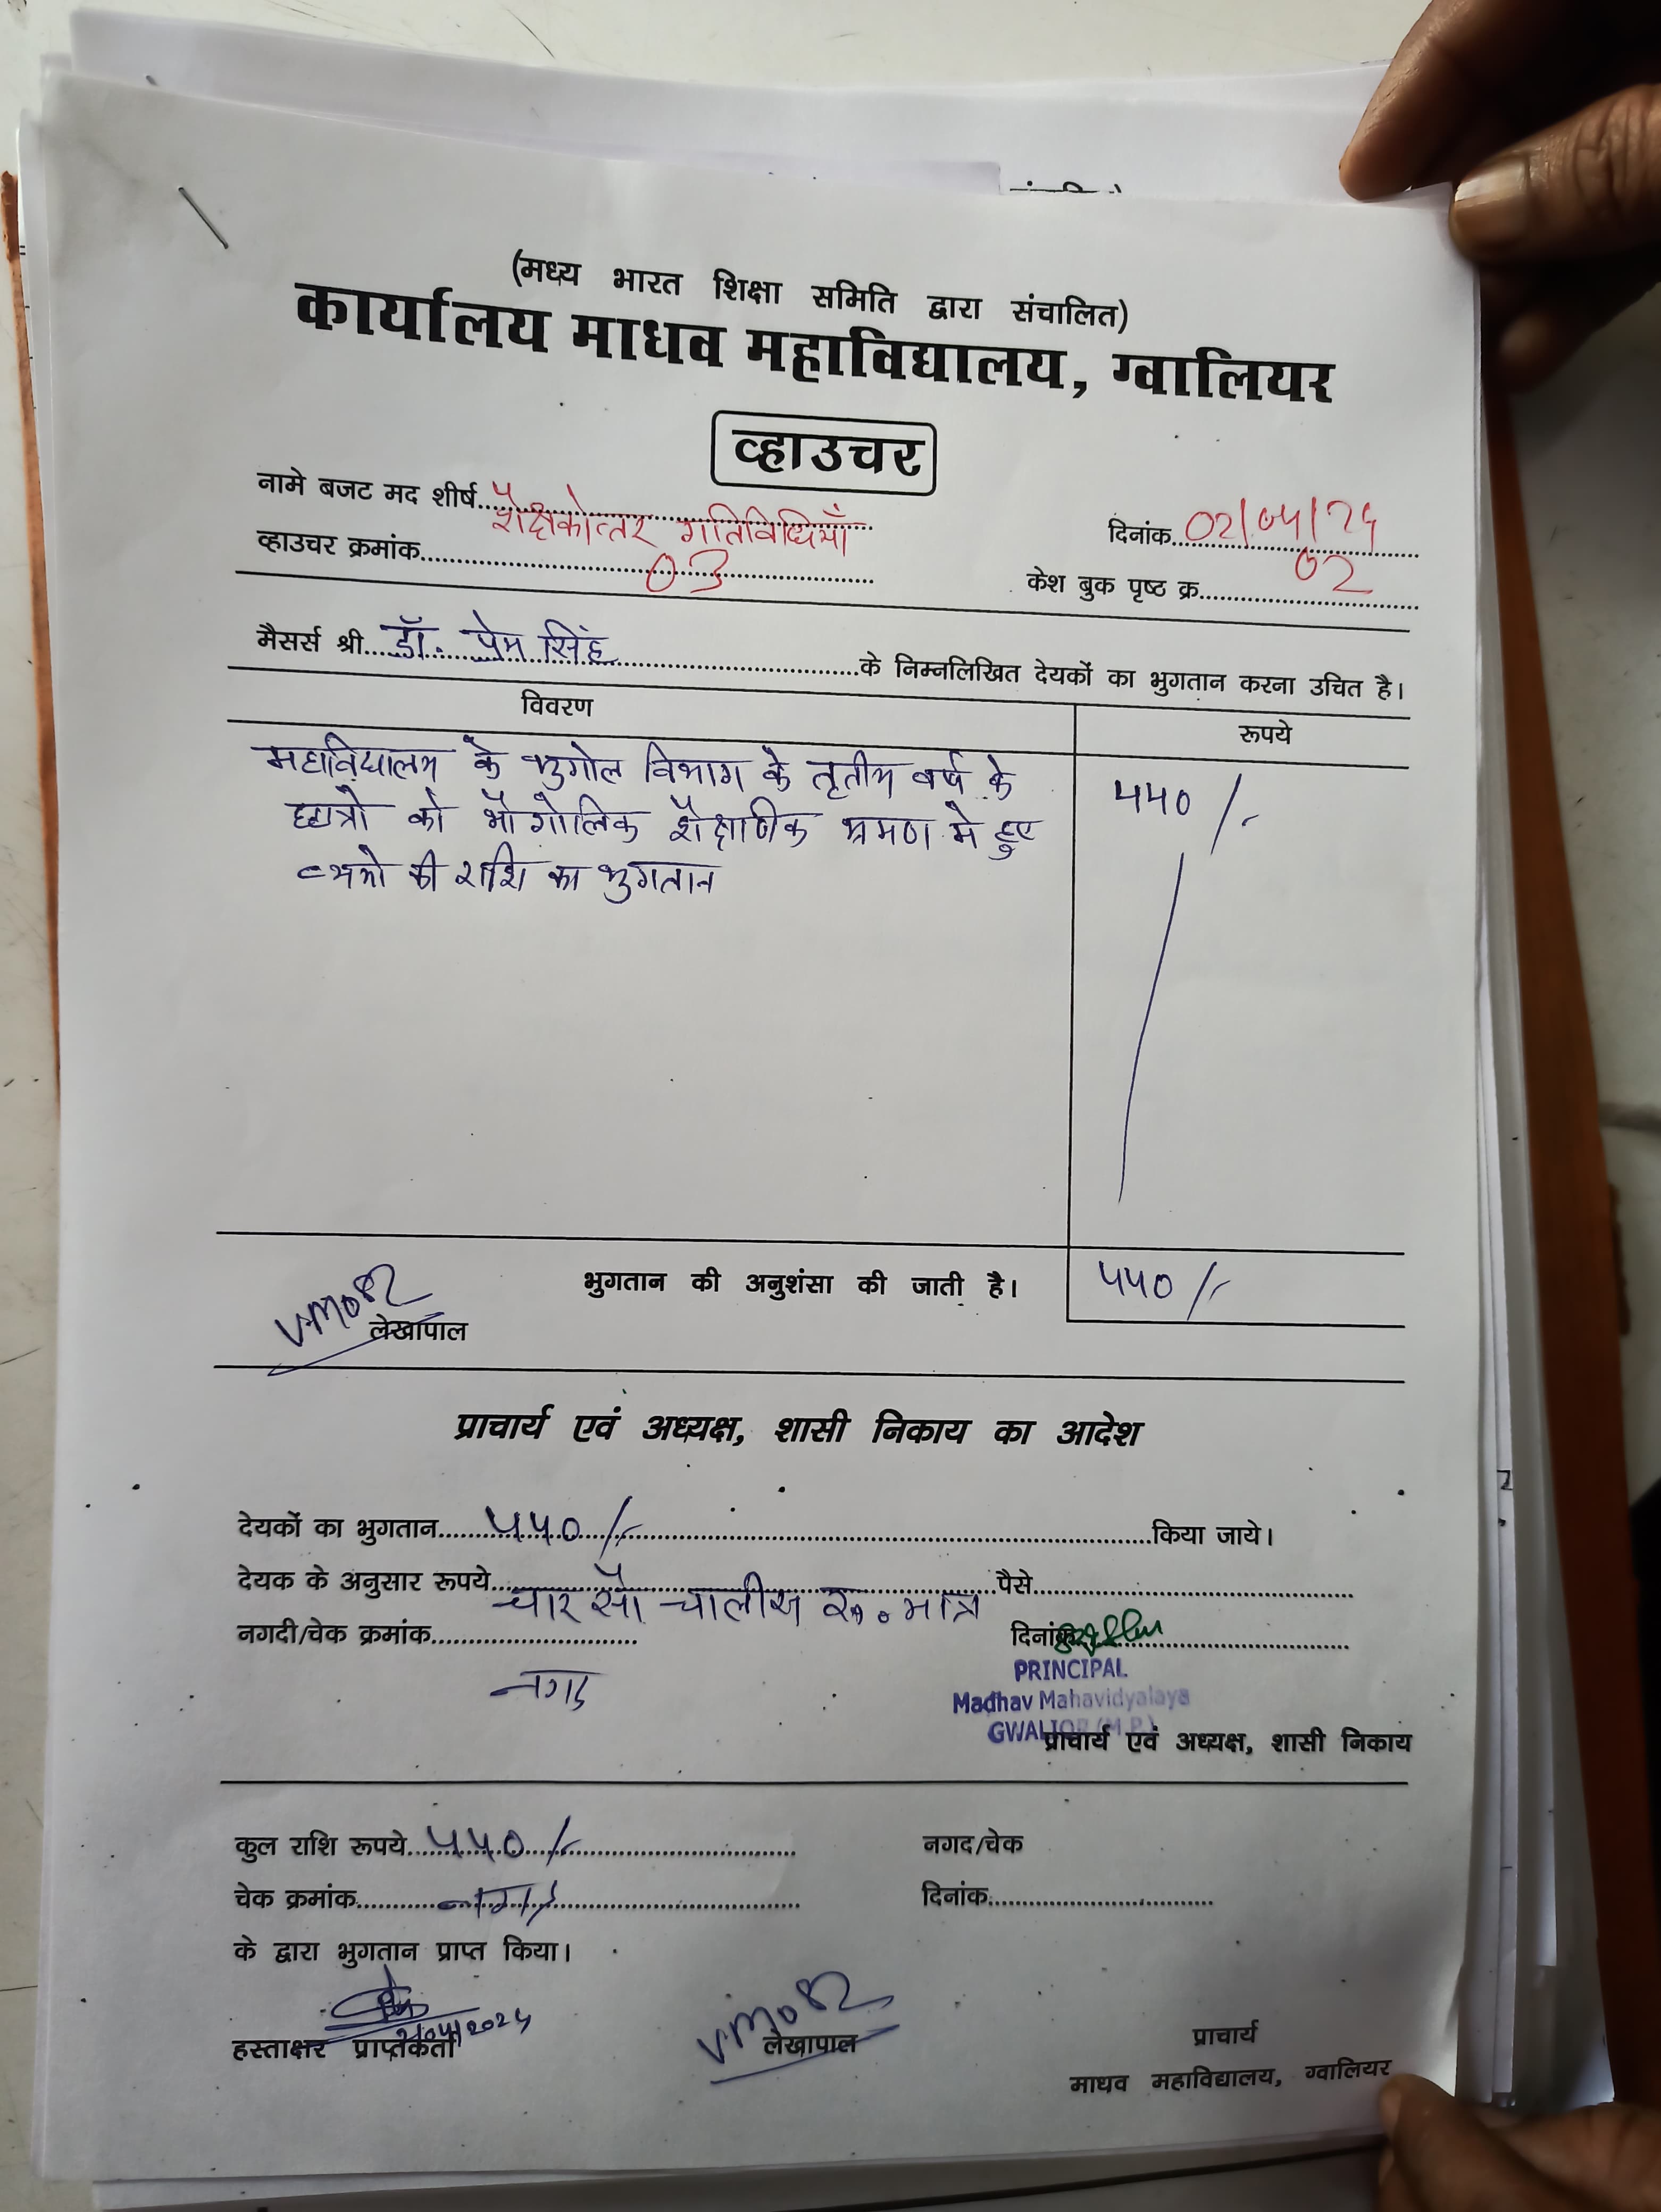 (मध्य भारत शिक्षा समिति द्वारा संचालित)
कार्यालय माधव महाविद्यालय, ग्वालियर
व्हाउचर
नामे बजट मद शीर्ष..शैक्षकोत्तर गतिविधियाँ
दिनांक..02/04/24
व्हाउचर क्रमांक..03
केश बुक पृष्ठ क्र..02
मैसर्स श्री..डॉ. प्रेम सिंह..के निम्नलिखित देयकों का भुगतान करना उचित है।
विवरण रूपये
महाविद्यालय के भुगोल विभाग के तृतीय वर्ष के 440/-
छात्रो को भौगोलिक शैक्षाणिक भ्रमण मे हुए
व्ययो की राशि का भुगतान
भुगतान की अनुशंसा की जाती है। 440/-
लेखापाल
प्राचार्य एवं अध्यक्ष, शासी निकाय का आदेश
देयकों का भुगतान..440/-..किया जाये।
देयक के अनुसार रूपये..चार सौ चालीस रू. मात्र..पैसे..
नगदी/चेक क्रमांक..नगद
दिनांक..
PRINCIPAL
Madhav Mahavidyalaya
GWALIOR (M.P.)
प्राचार्य एवं अध्यक्ष, शासी निकाय
कुल राशि रूपये..440/-.. नगद/चेक
चेक क्रमांक..नगद.. दिनांक..
के द्वारा भुगतान प्राप्त किया।
2/04/2024
हस्ताक्षर प्राप्तकर्ता
लेखापाल
प्राचार्य
माधव महाविद्यालय, ग्वालियर